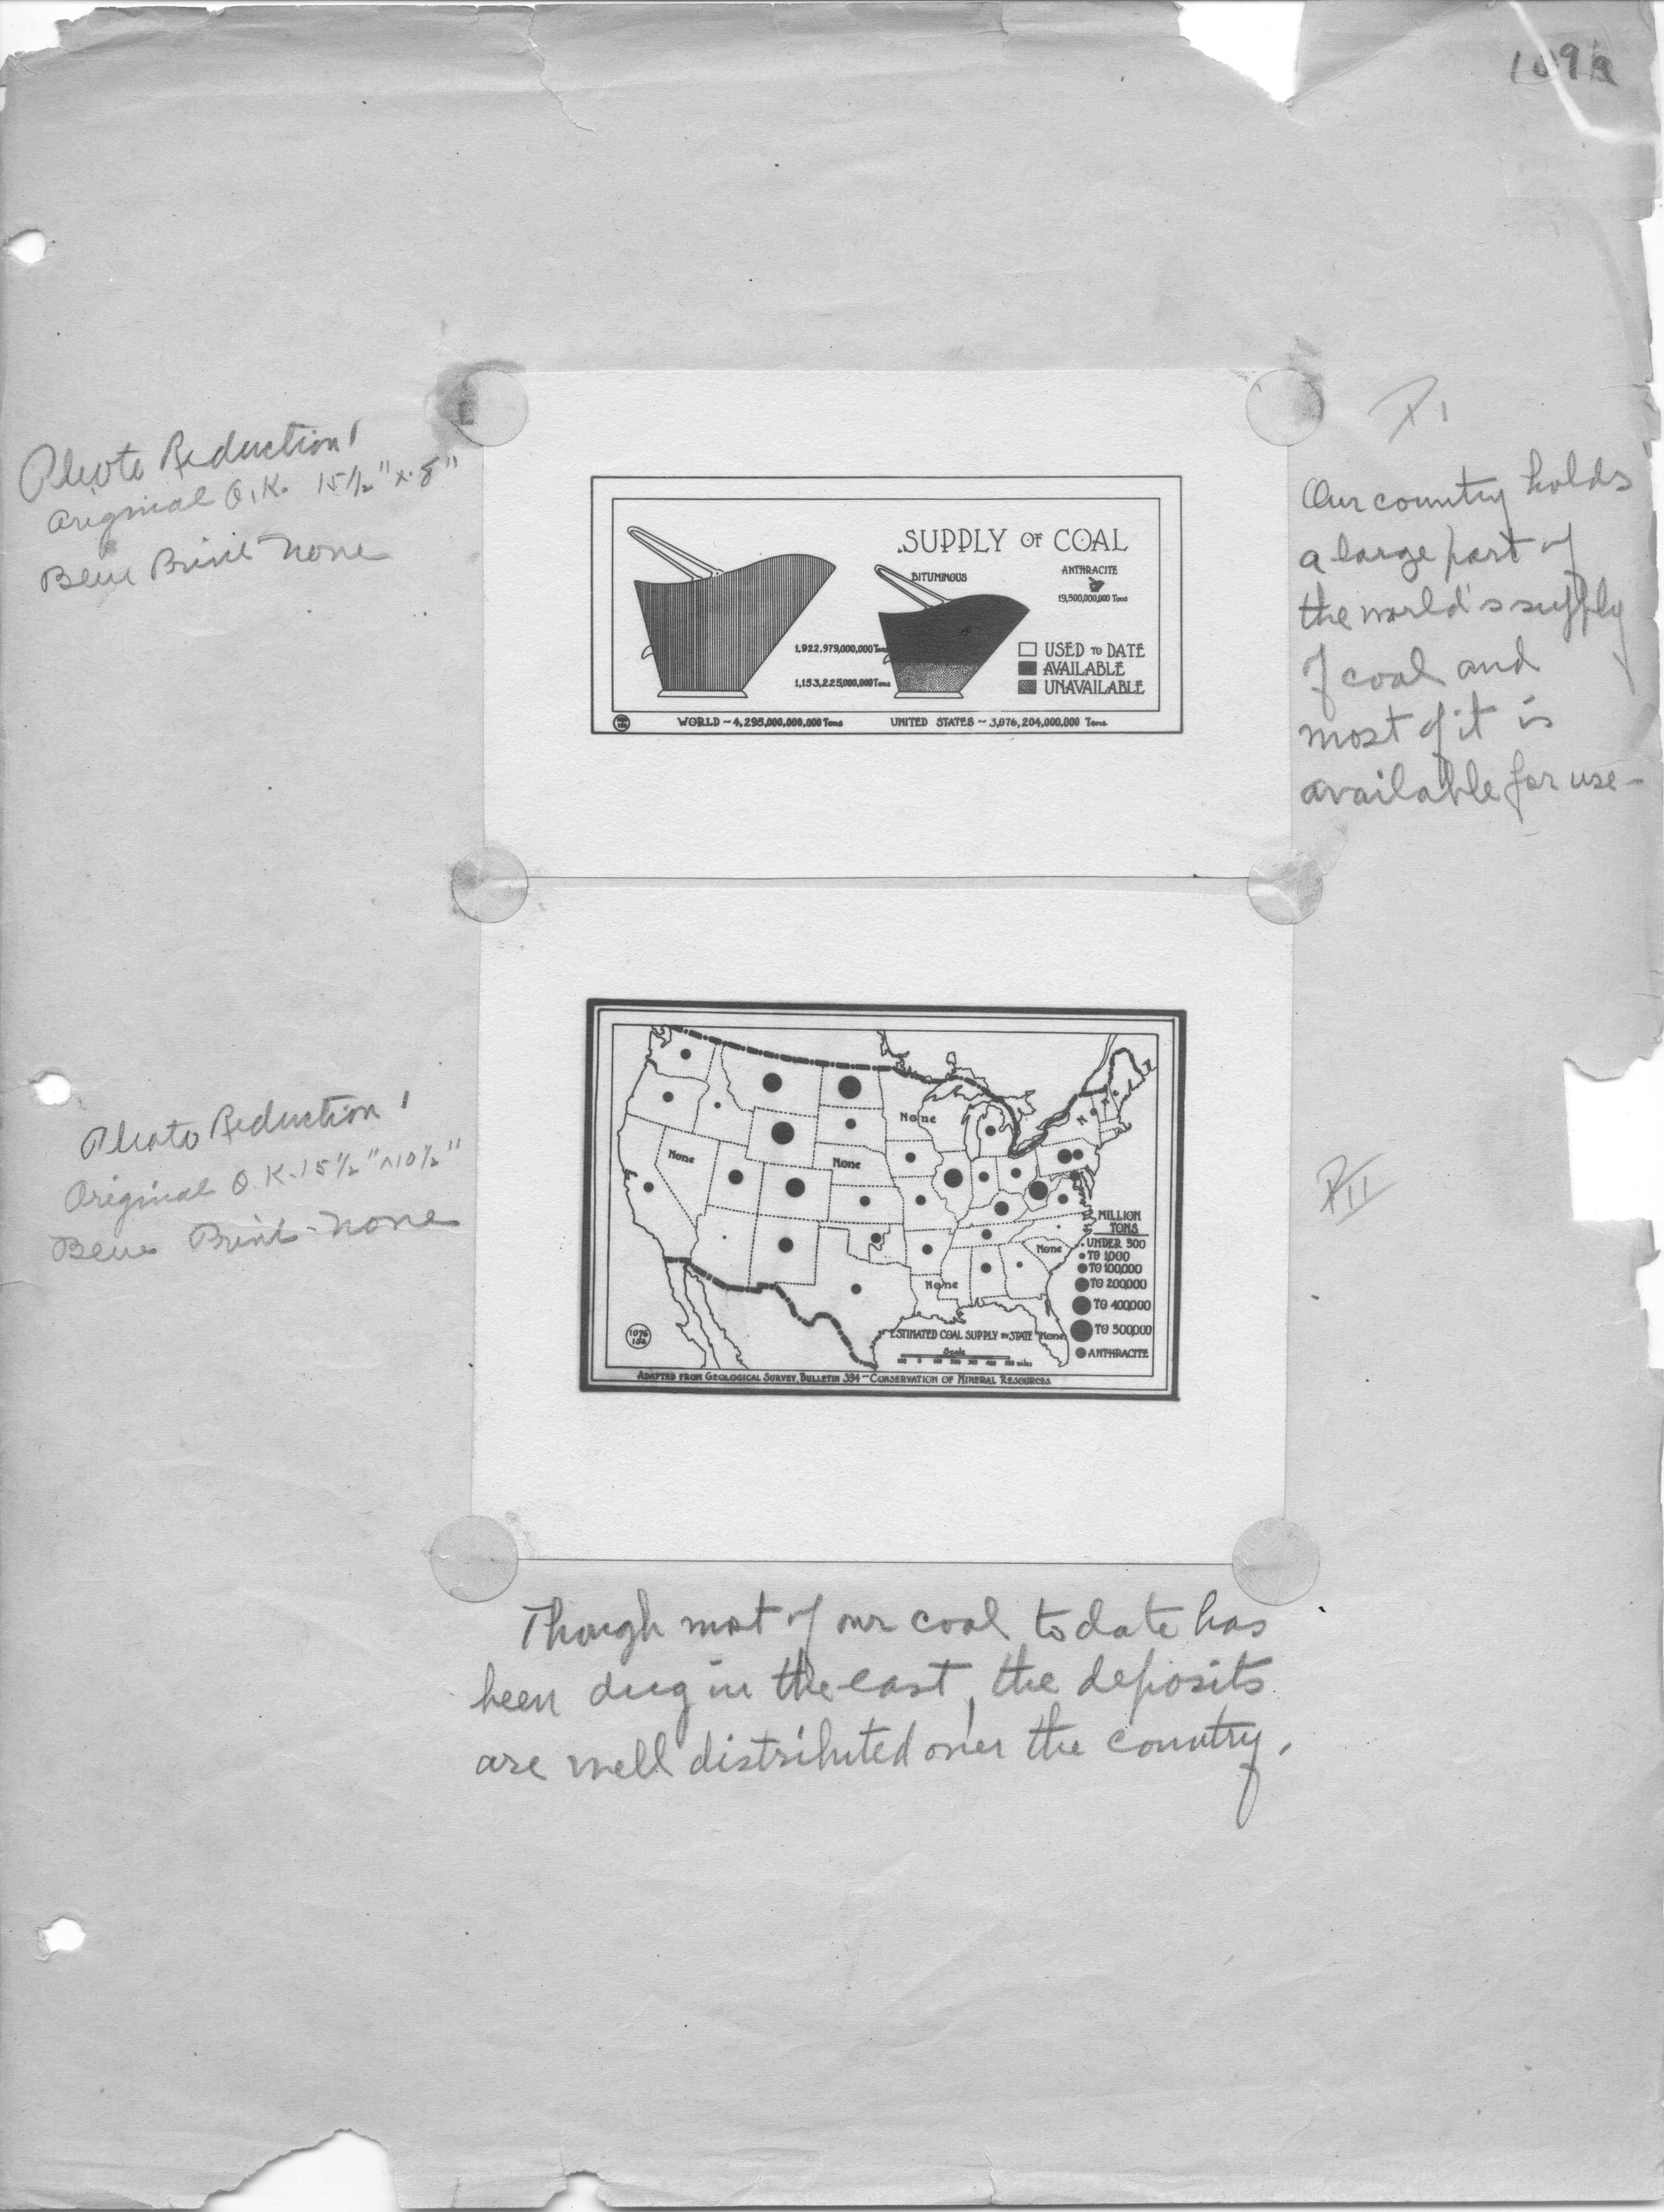 Photo Reduction
Original O.K. 15 1/2" x 8"
Blue Print none
SUPPLY OF COAL
BITUMINOUS
ANTHRACITE
19,500,000,000 Tons
1,922,979,000,000 Tons
1,153,225,000,000 Tons
USED TO DATE
AVAILABLE
UNAVAILABLE
WORLD ~ 4,295,000,000,000 Tons
UNITED STATES ~ 3,076,204,000,000 Tons
P I
Our country holds
a large part of
the world's supply
of coal and
most of it is
available for use -
Photo Reduction
Original O.K. 15 1/2" x 10 1/2"
Blue Print - none
None
None
None
None
None
None
MILLION
TONS
UNDER 500
TO 1000
TO 100,000
TO 200,000
TO 400,000
TO 500,000
ANTHRACITE
ESTIMATED COAL SUPPLY BY STATE
Scale
ADAPTED FROM GEOLOGICAL SURVEY, BULLETIN 394 - CONSERVATION OF MINERAL RESOURCES
P II
Though most of our coal to date has
been dug in the east, the deposits
are well distributed over the country.